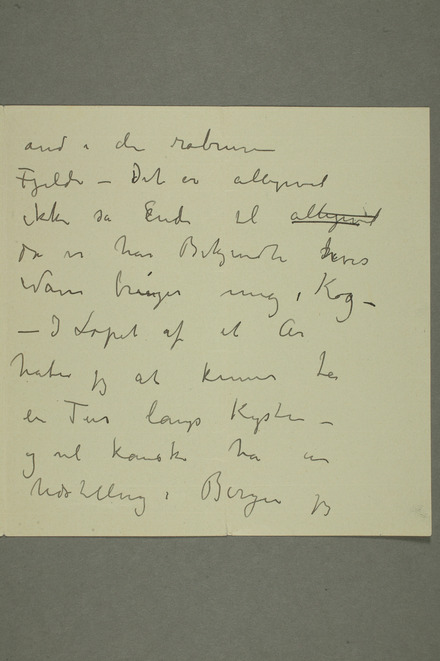 and i de rabrune
Fjelde – Det er alligevel
ikke så Ende til alligevel
da vi har Bekjendte hvis
Navn bringer mig i Kog –
– I Løpet af et År
håber jeg at kunne ta
en Tur langs Kysten –
og vil kanske ha en
Udstilling i Bergen jeg